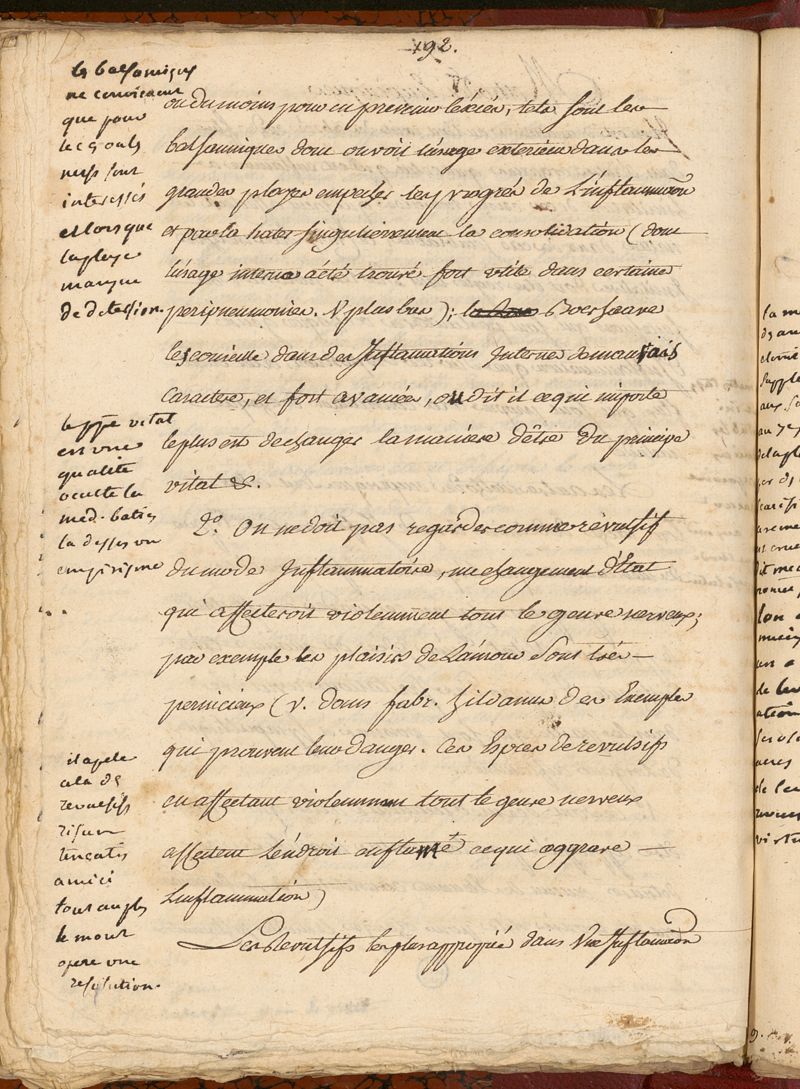 192.
les balsamiques
ne conviennent
que pour
les
sont
interessés
et lorsque
la playe
manque
de detersion.
ou du moins pour en prevenir l'éxcés, tels sont les
balsamiques dont on voit l'usage exterieur dans les
grandes playes empecher les progrés de L'inflammãon
et par la hater singulierement la consolidation (dont
l'usage interne a été trouvé fort utile dans certaine
peripneumonies. V plus bas); Boerhaave
les conseille dans des Inflammations Interne de mauvais
caractere, et fort avancées, ou dit il ce qui importe
le plus est de changer la maniere d'être du principe
vital &.
le ppe vital
est une
qualité
occulte la
med. batie
la dessus
empirisme
2.º On ne doit pas regarder comme révulsif
du mode Inflammatoire, un changement d'Etat
qui affecteroit violemment tout le genre nerveux;
par exemple les plaisirs de L'amour sont très-
pernicieux (v. dans fabr. hildanus des Exemples
qui prouvent leur danger. Ces Especes de revulsifs
en affectant violemment tout le genre nerveux
affectent L'endroit enflammé ce qui aggrave
L'inflammation)
il apele
cela des
revulsifs
risum
teneatis
amici
tout au plus
le mout
opere une
resolution.
Les Revulsifs les plus appropriés dans Une Inflammãon